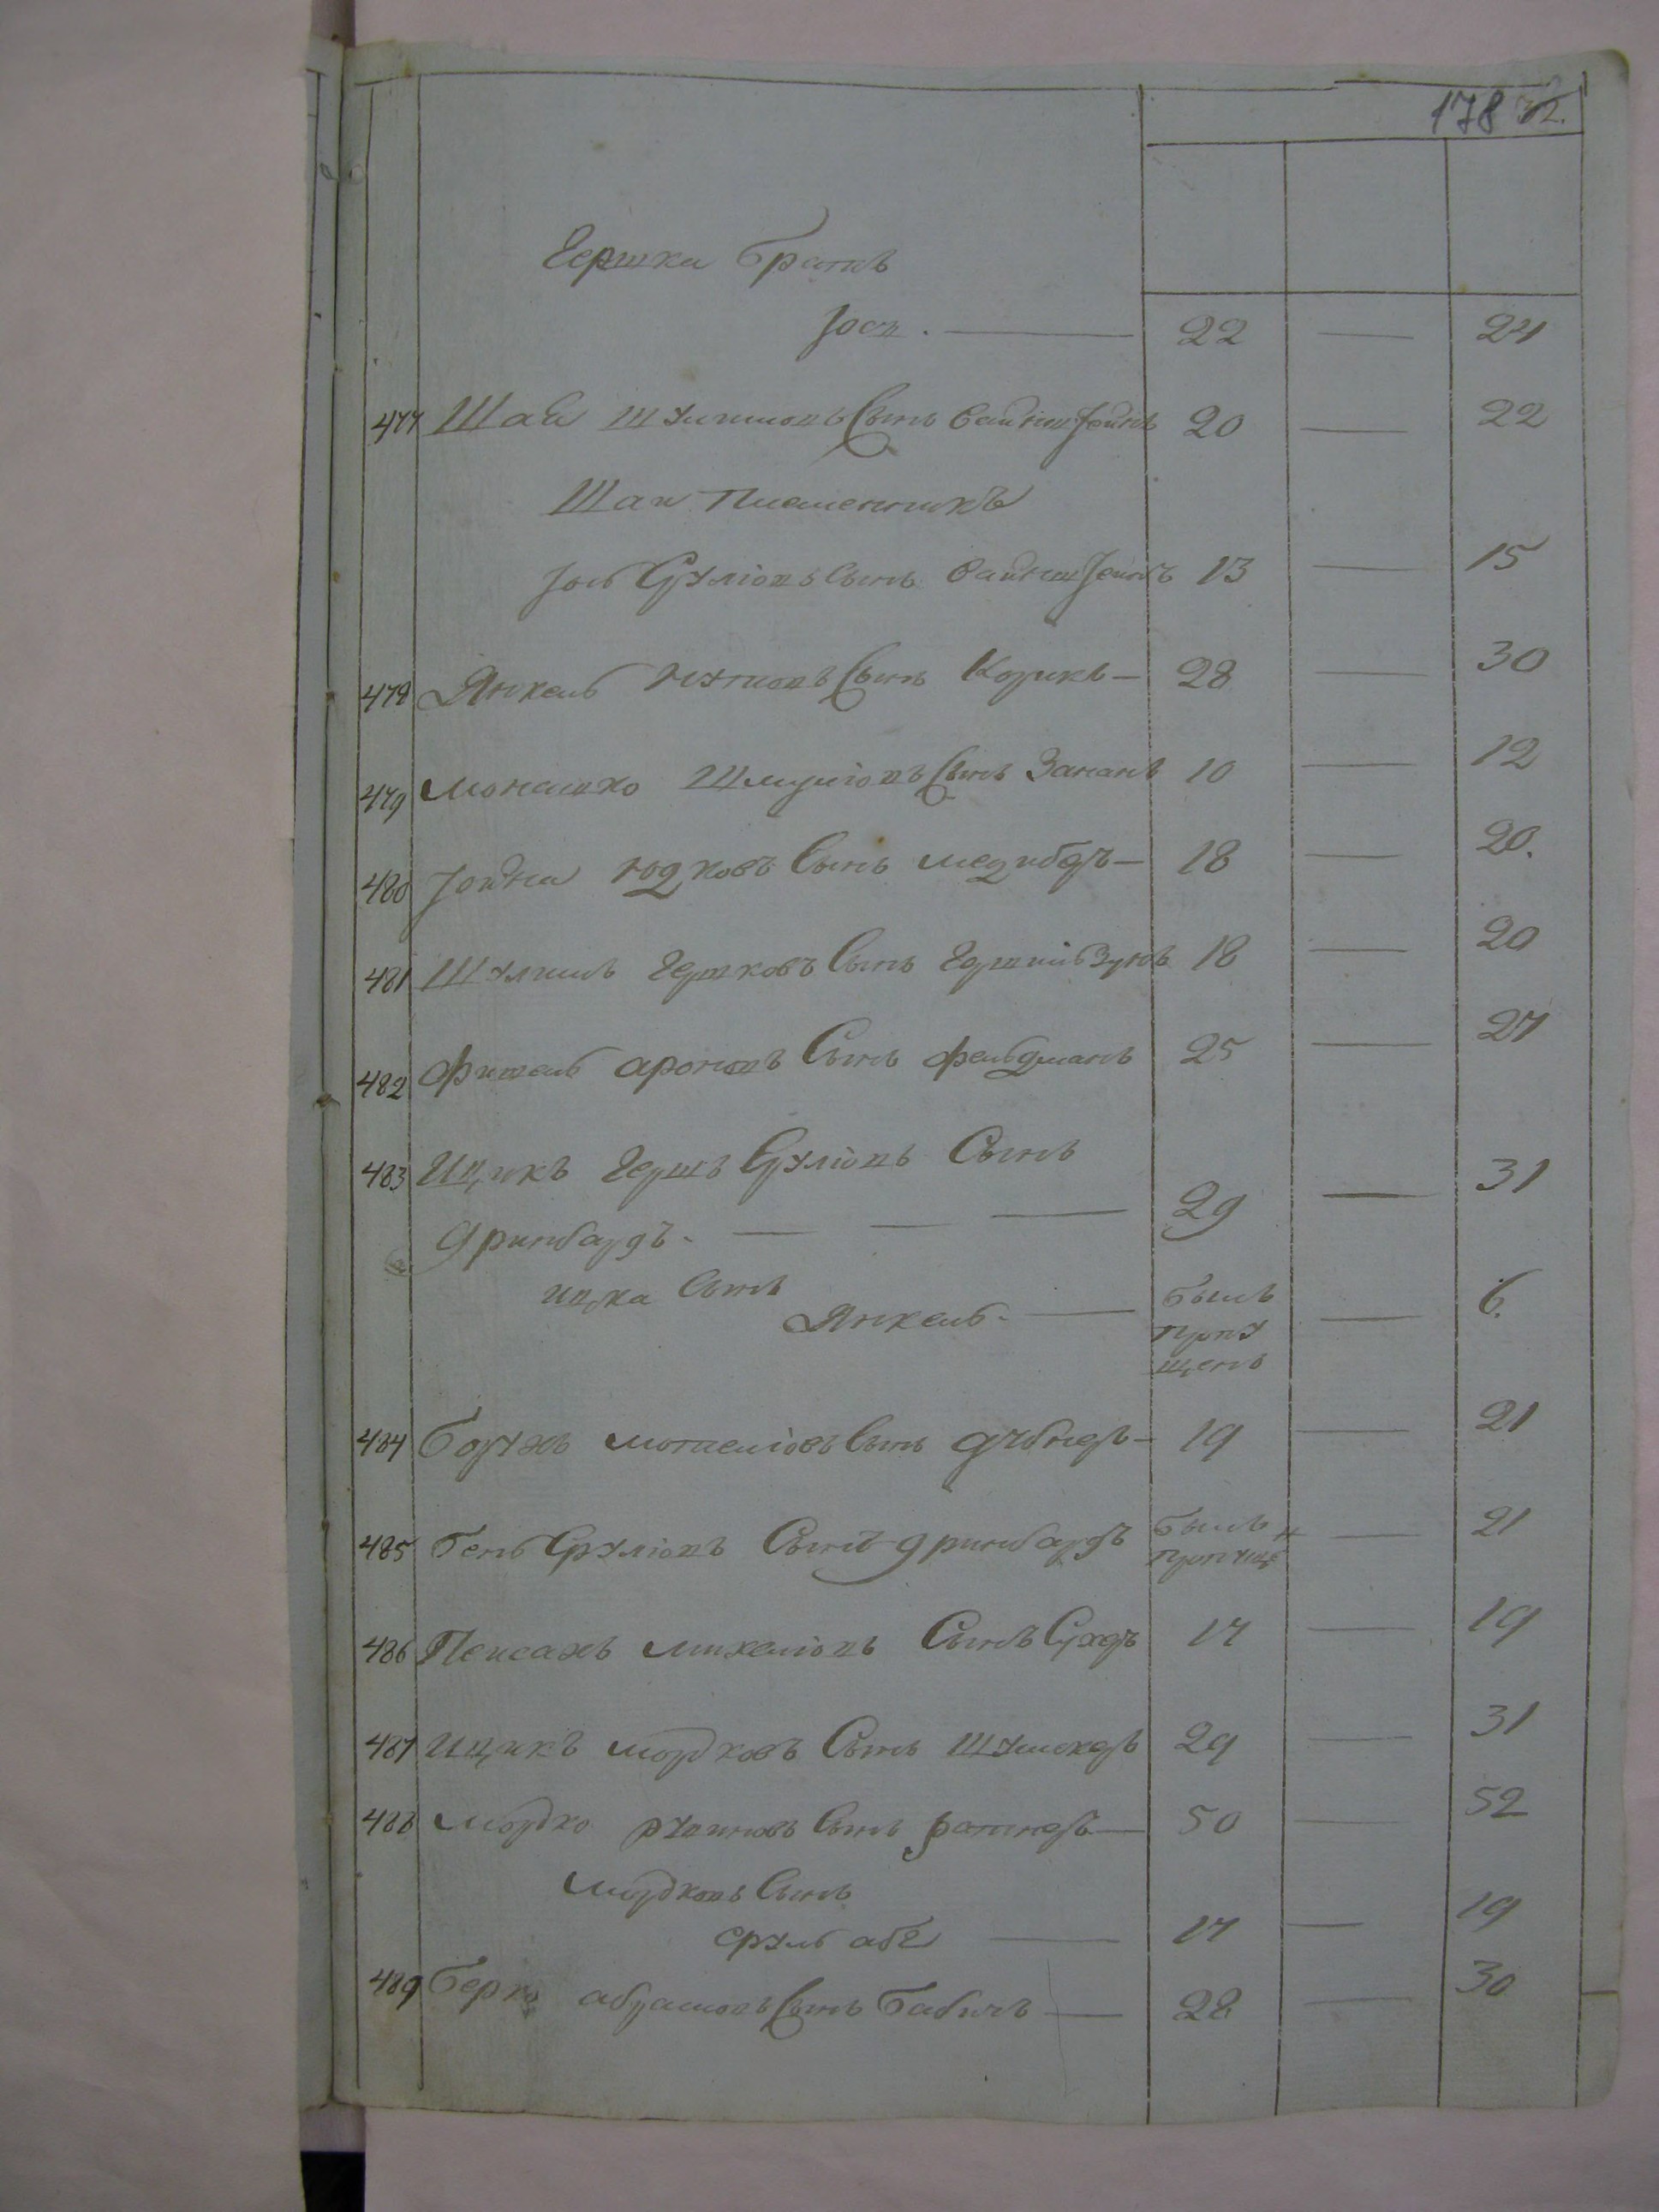 178 32.
Гершки братъ
Іось. — 22 — 24
477 Шая Шулимовъ Сынъ Вайнштейнъ 20 — 22
Шаи Племенникъ
Іось Срулiовъ Сынъ Вайнштейнъ 13 — 15
478 Янкель Нутовъ Сынъ Козикъ — 28 — 30
479 Монашко Шмулiовъ Сынъ 10 — 12
480 Іойна Юдковъ Сынъ Медибедъ — 18 — 20.
481 Шулимъ Гершковъ Сынъ 18 — 20
482 Фишель Ароновъ Сынъ Фельдманъ 25 — 27
483 Ицикъ Гершъ Срулiовъ Сынъ
Гринбардъ. — — — 29 — 31
Ицка Сынъ
Янкель. — былъ пропущенъ — 6.
484 Борухъ Мошелiовъ Сынъ Дубнеръ — 19 — 21
485 Бень Срулiовъ Сынъ Гринбардъ былъ пропуще н — 21
486 Пейсахъ Михелiовъ Сынъ Сухеръ 17 — 19
487 Ицикъ Мордковъ Сынъ Шумкеръ 29 — 31
488 Мордко Рувиновъ Сынъ Ратнеръ — 50 — 52
Мордковъ Сынъ
Сруль абе — 17 — 19
489 Берко Абрамовъ Сынъ Бабичъ — 28 — 30